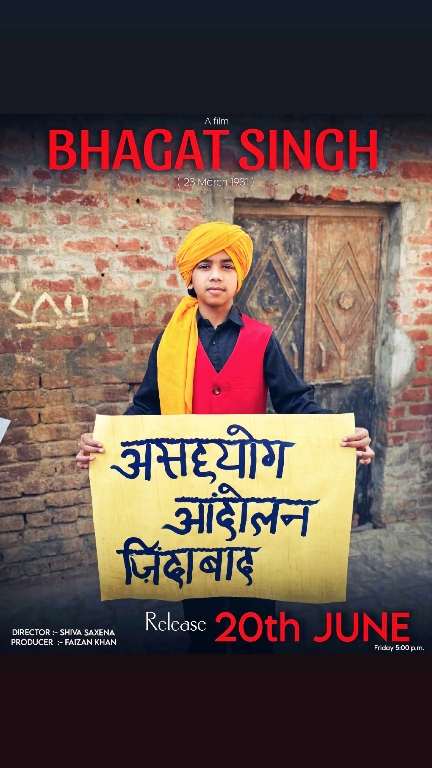 A film
BHAGAT SINGH
( 23 March 1931 )
असहयोग
आंदोलन
ज़िंदाबाद
Release 20th JUNE
DIRECTOR :- SHIVA SAXENA
PRODUCER :- FAIZAN KHAN
Friday 5:00 p.m.